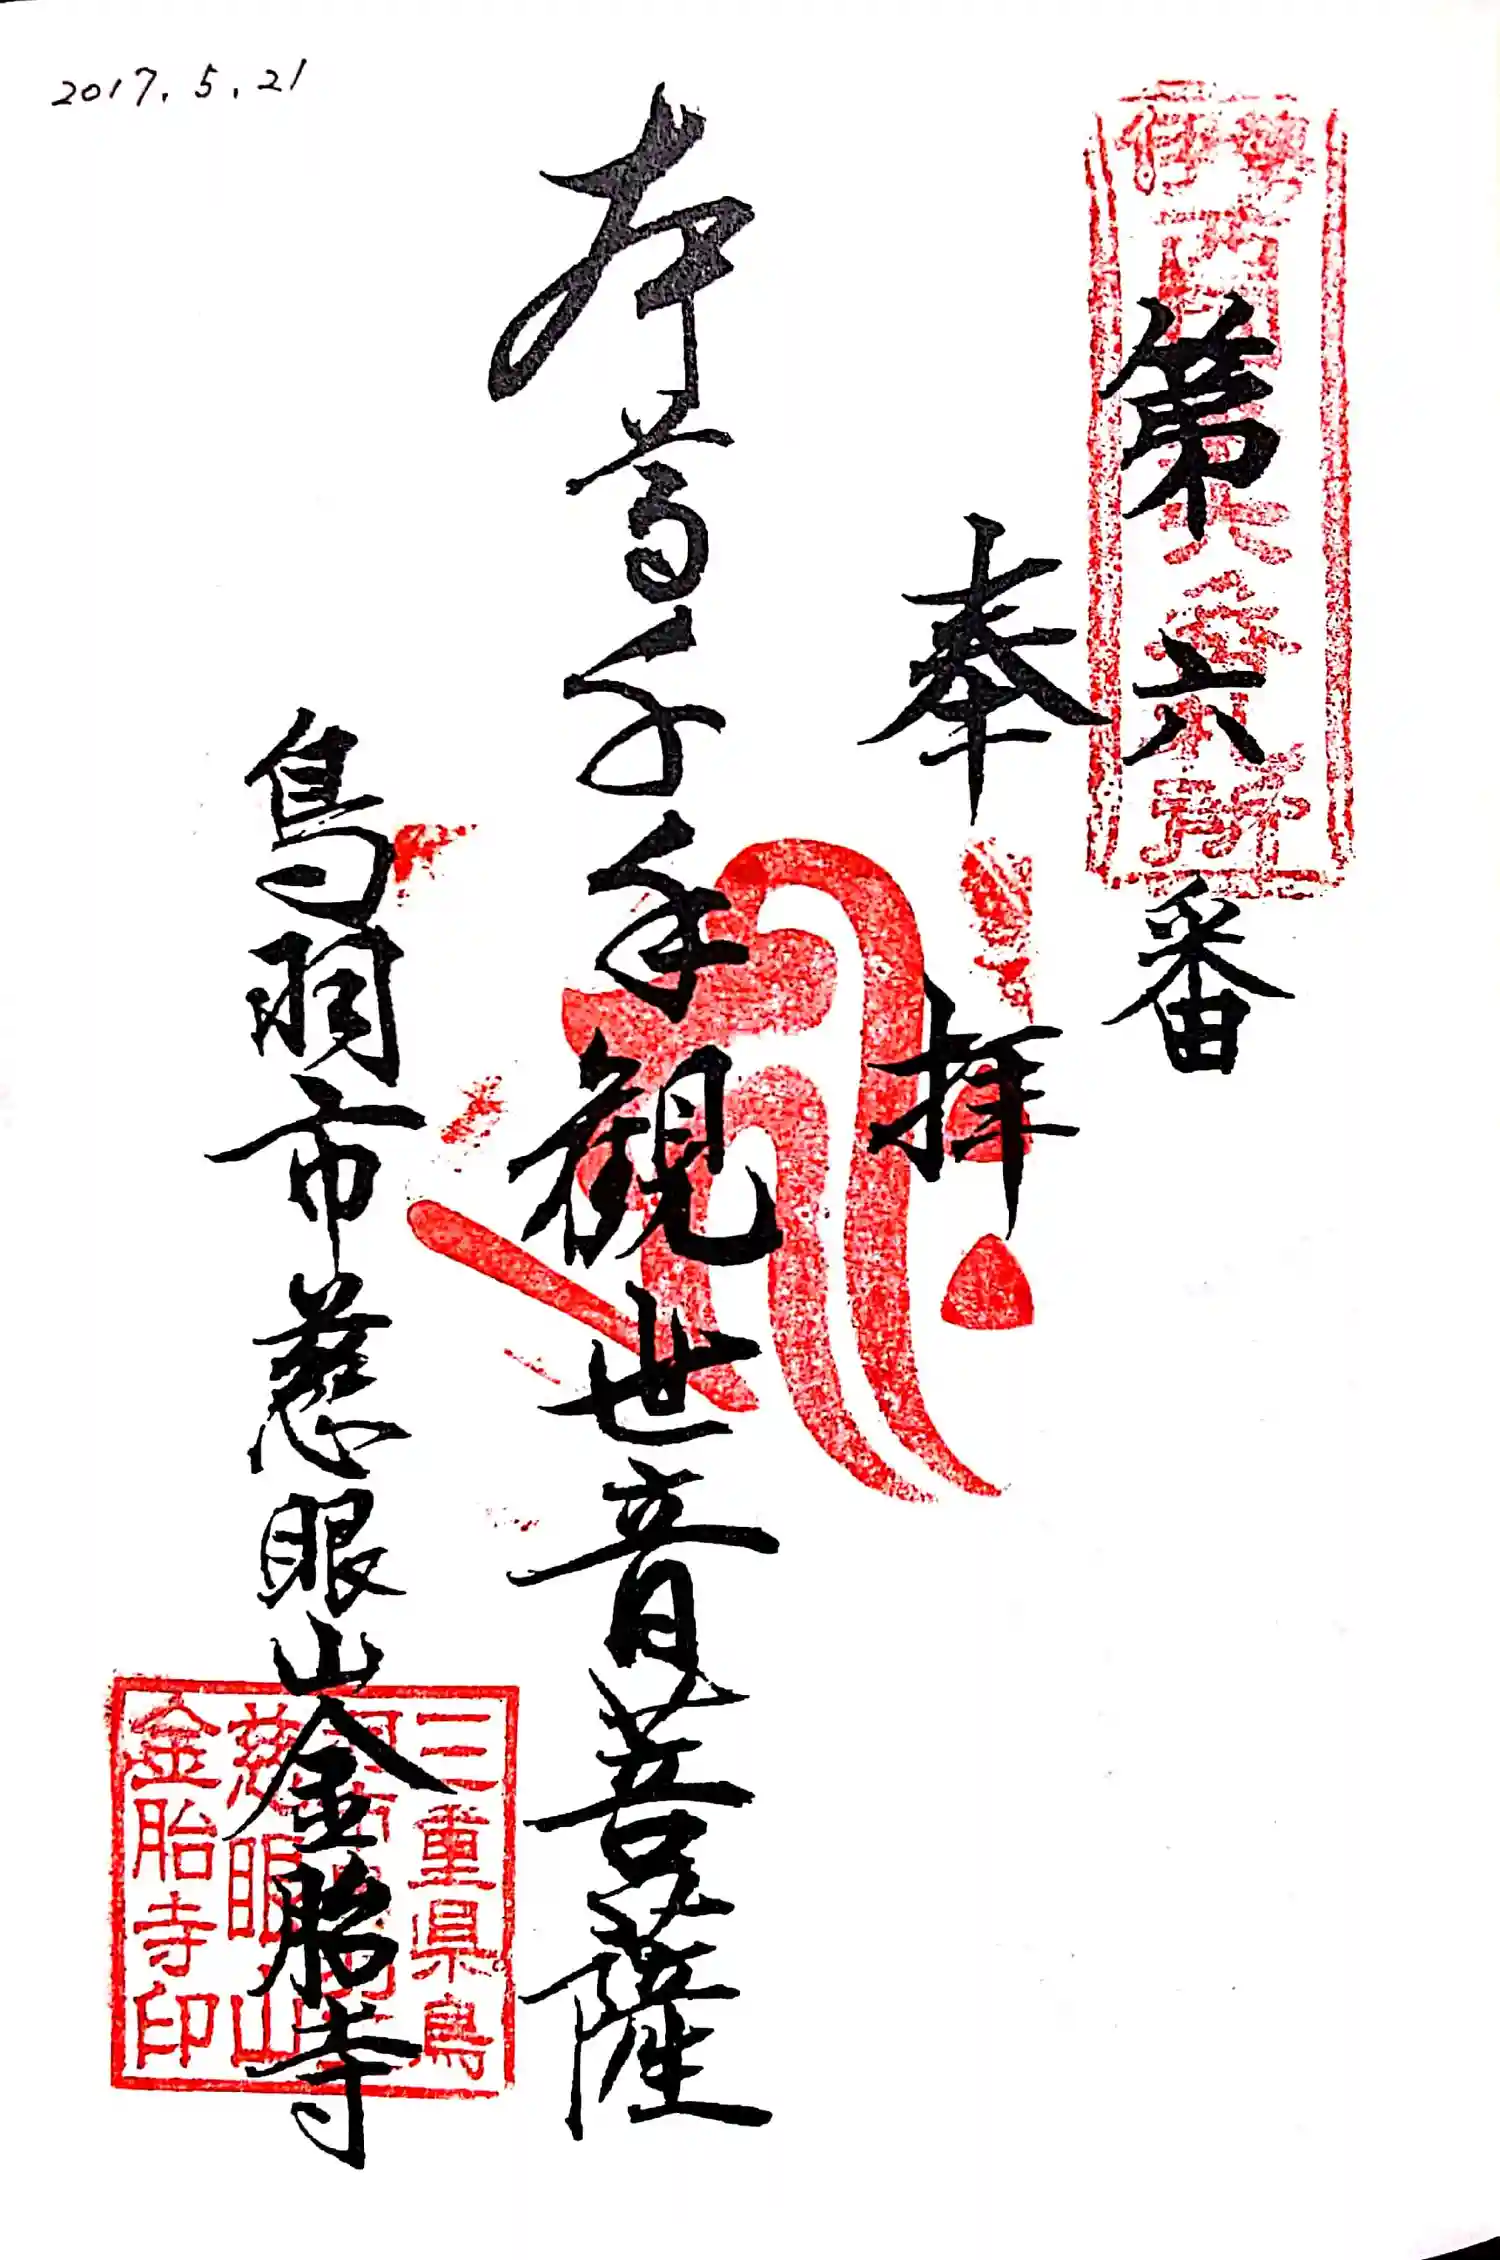 2017.5.21
第六番
奉拝
本尊千手観世音菩薩
鳥羽市慈眼山金胎寺
三重県鳥
慈眼山
金胎寺印